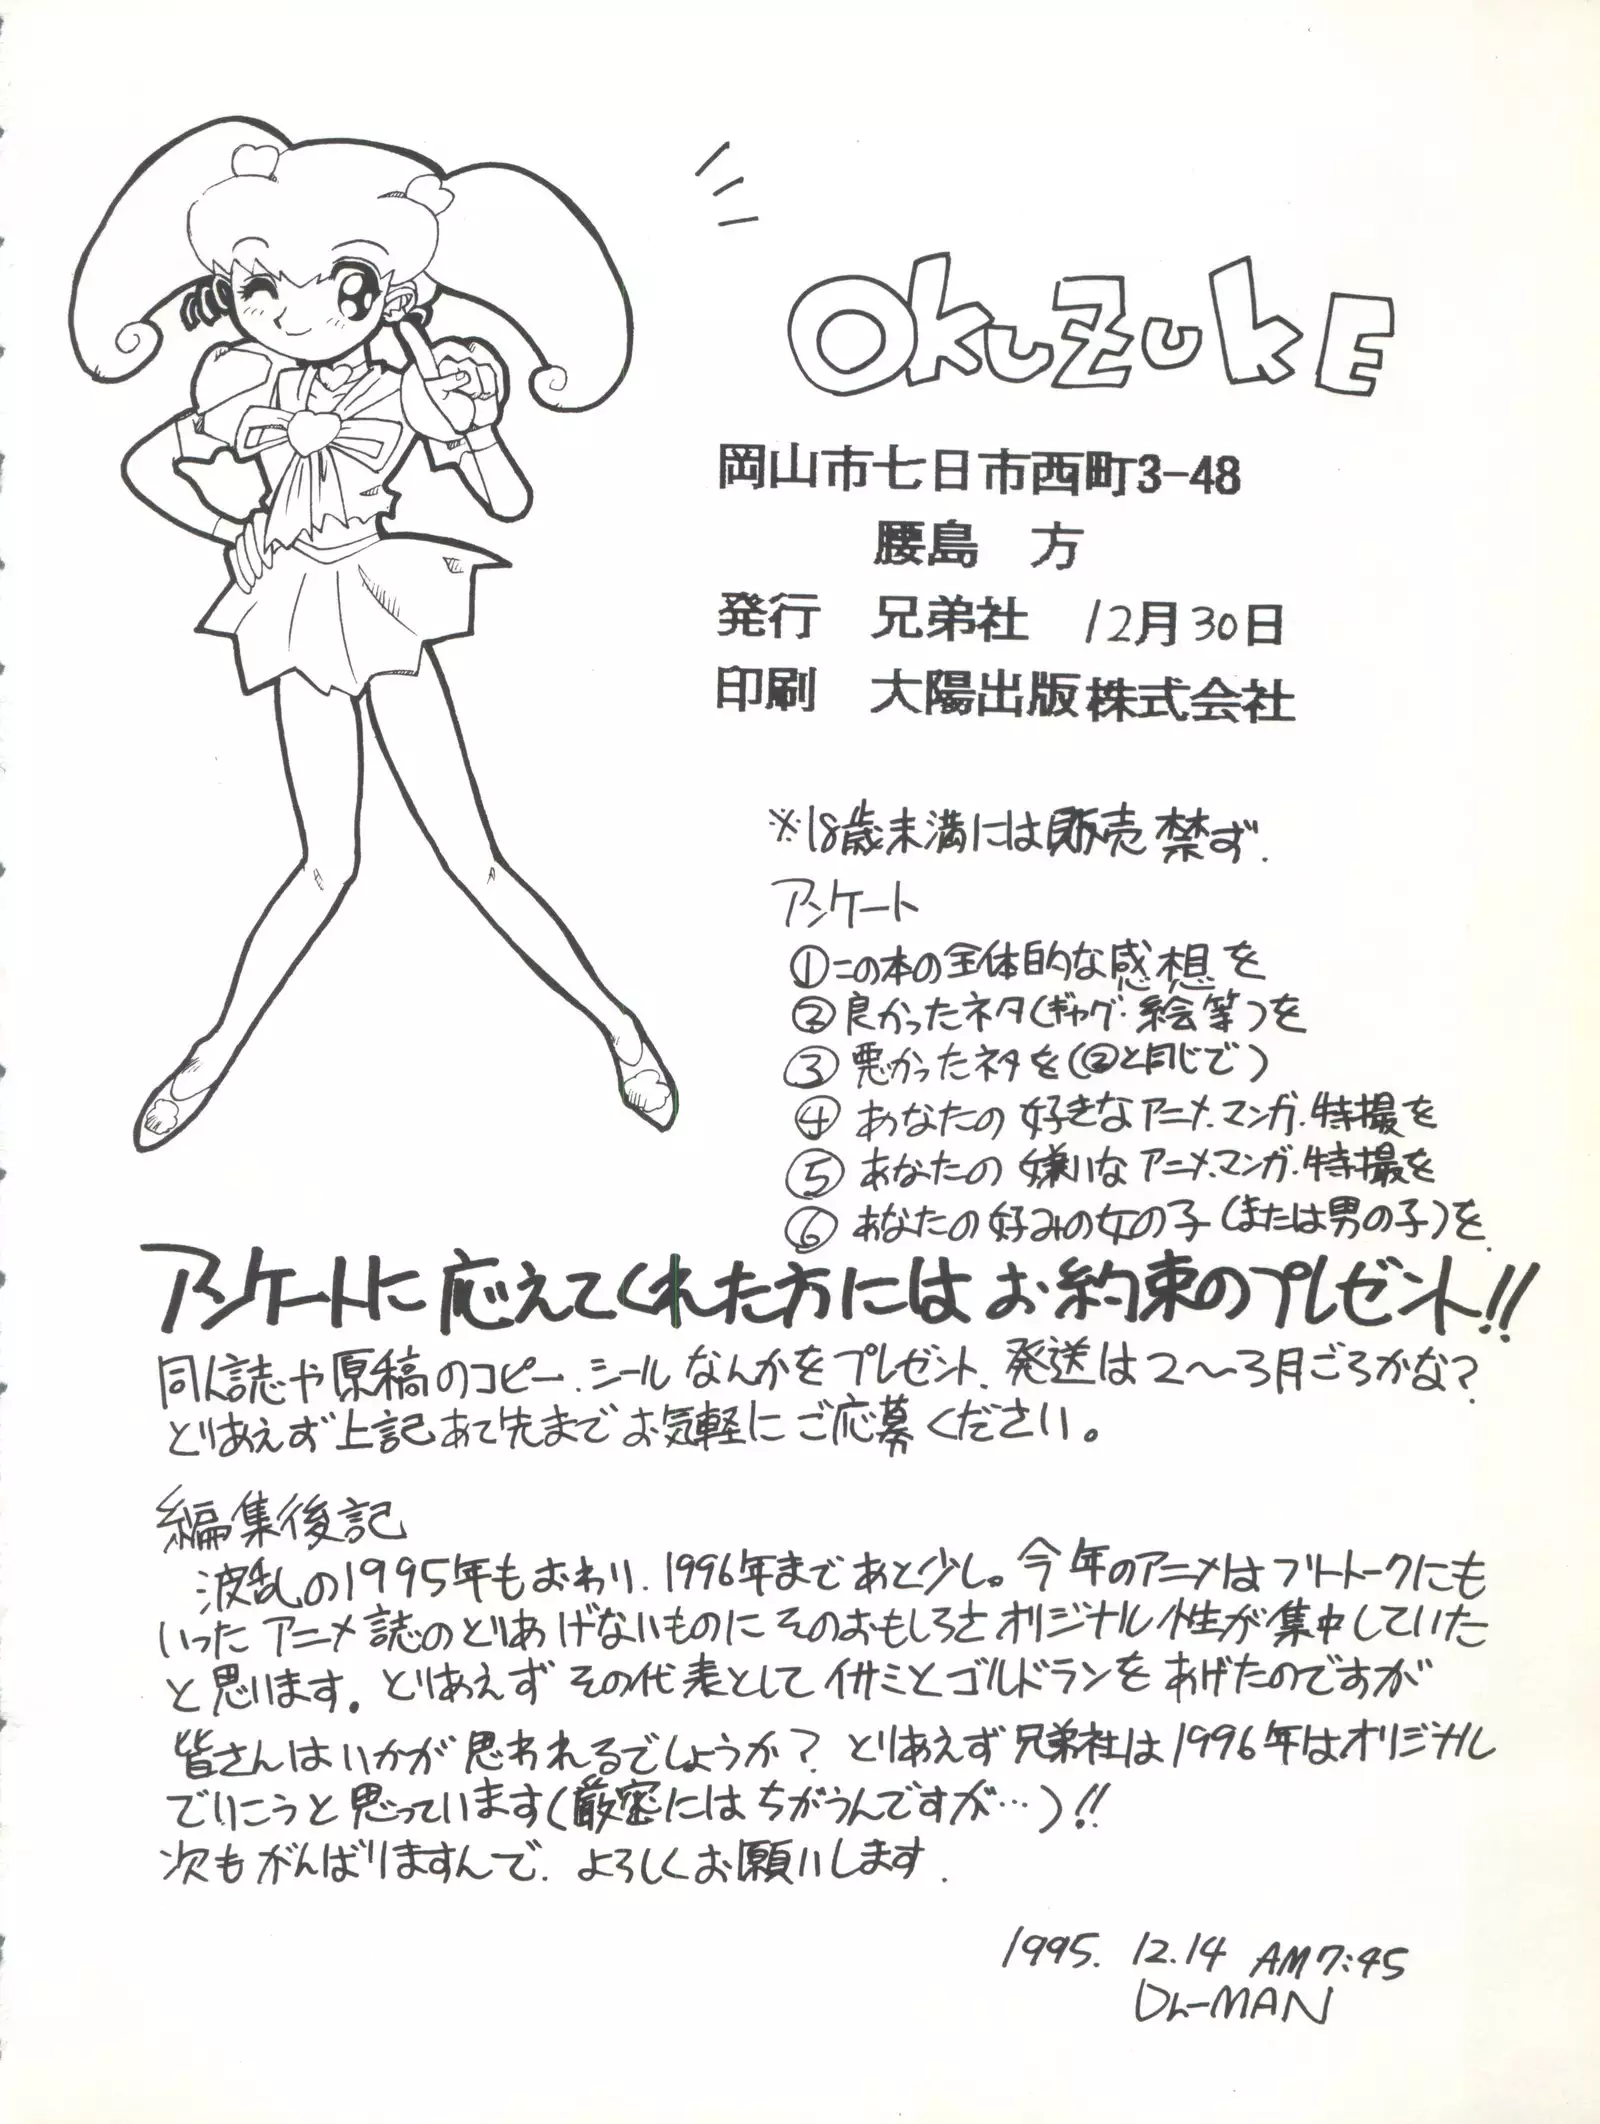 OkuZukE
岡山市七日市西町3-48
腰島 方
発行 兄弟社 12月30日
印刷 大陽出版株式会社
※18歳未満には販売禁ず.
アンケート
①この本の全体的な感想を
②良かったネタ(ギャグ・絵等)を
③悪かったネタを(②と同じで)
④あなたの好きなアニメ.マンガ.特撮を
⑤あなたの嫌いなアニメ.マンガ.特撮を
⑥あなたの好みの女の子(または男の子)を.
アンケートに応えてくれた方にはお約束のプレゼント!!
同人誌や原稿のコピー.シールなんかをプレゼント.発送は2〜3月ごろかな?
とりあえず上記あて先までお気軽にご応募ください。
編集後記
波乱の1995年もおわり.1996年まであと少し。今年のアニメはブートトークにも
いったアニメ誌のとりあげないものにそのおもしろさオリジナル性が集中していた
と思います。とりあえずその代表としてイサミとゴルドランをあげたのですが
皆さんはいかが思われるでしょうか?とりあえず兄弟社は1996年はオリジナル
でいこうと思っています(厳密にはちがうんですが…)!!
次もがんばりますんで.よろしくお願いします.
1995. 12.14 AM7:45
Dh-MAN